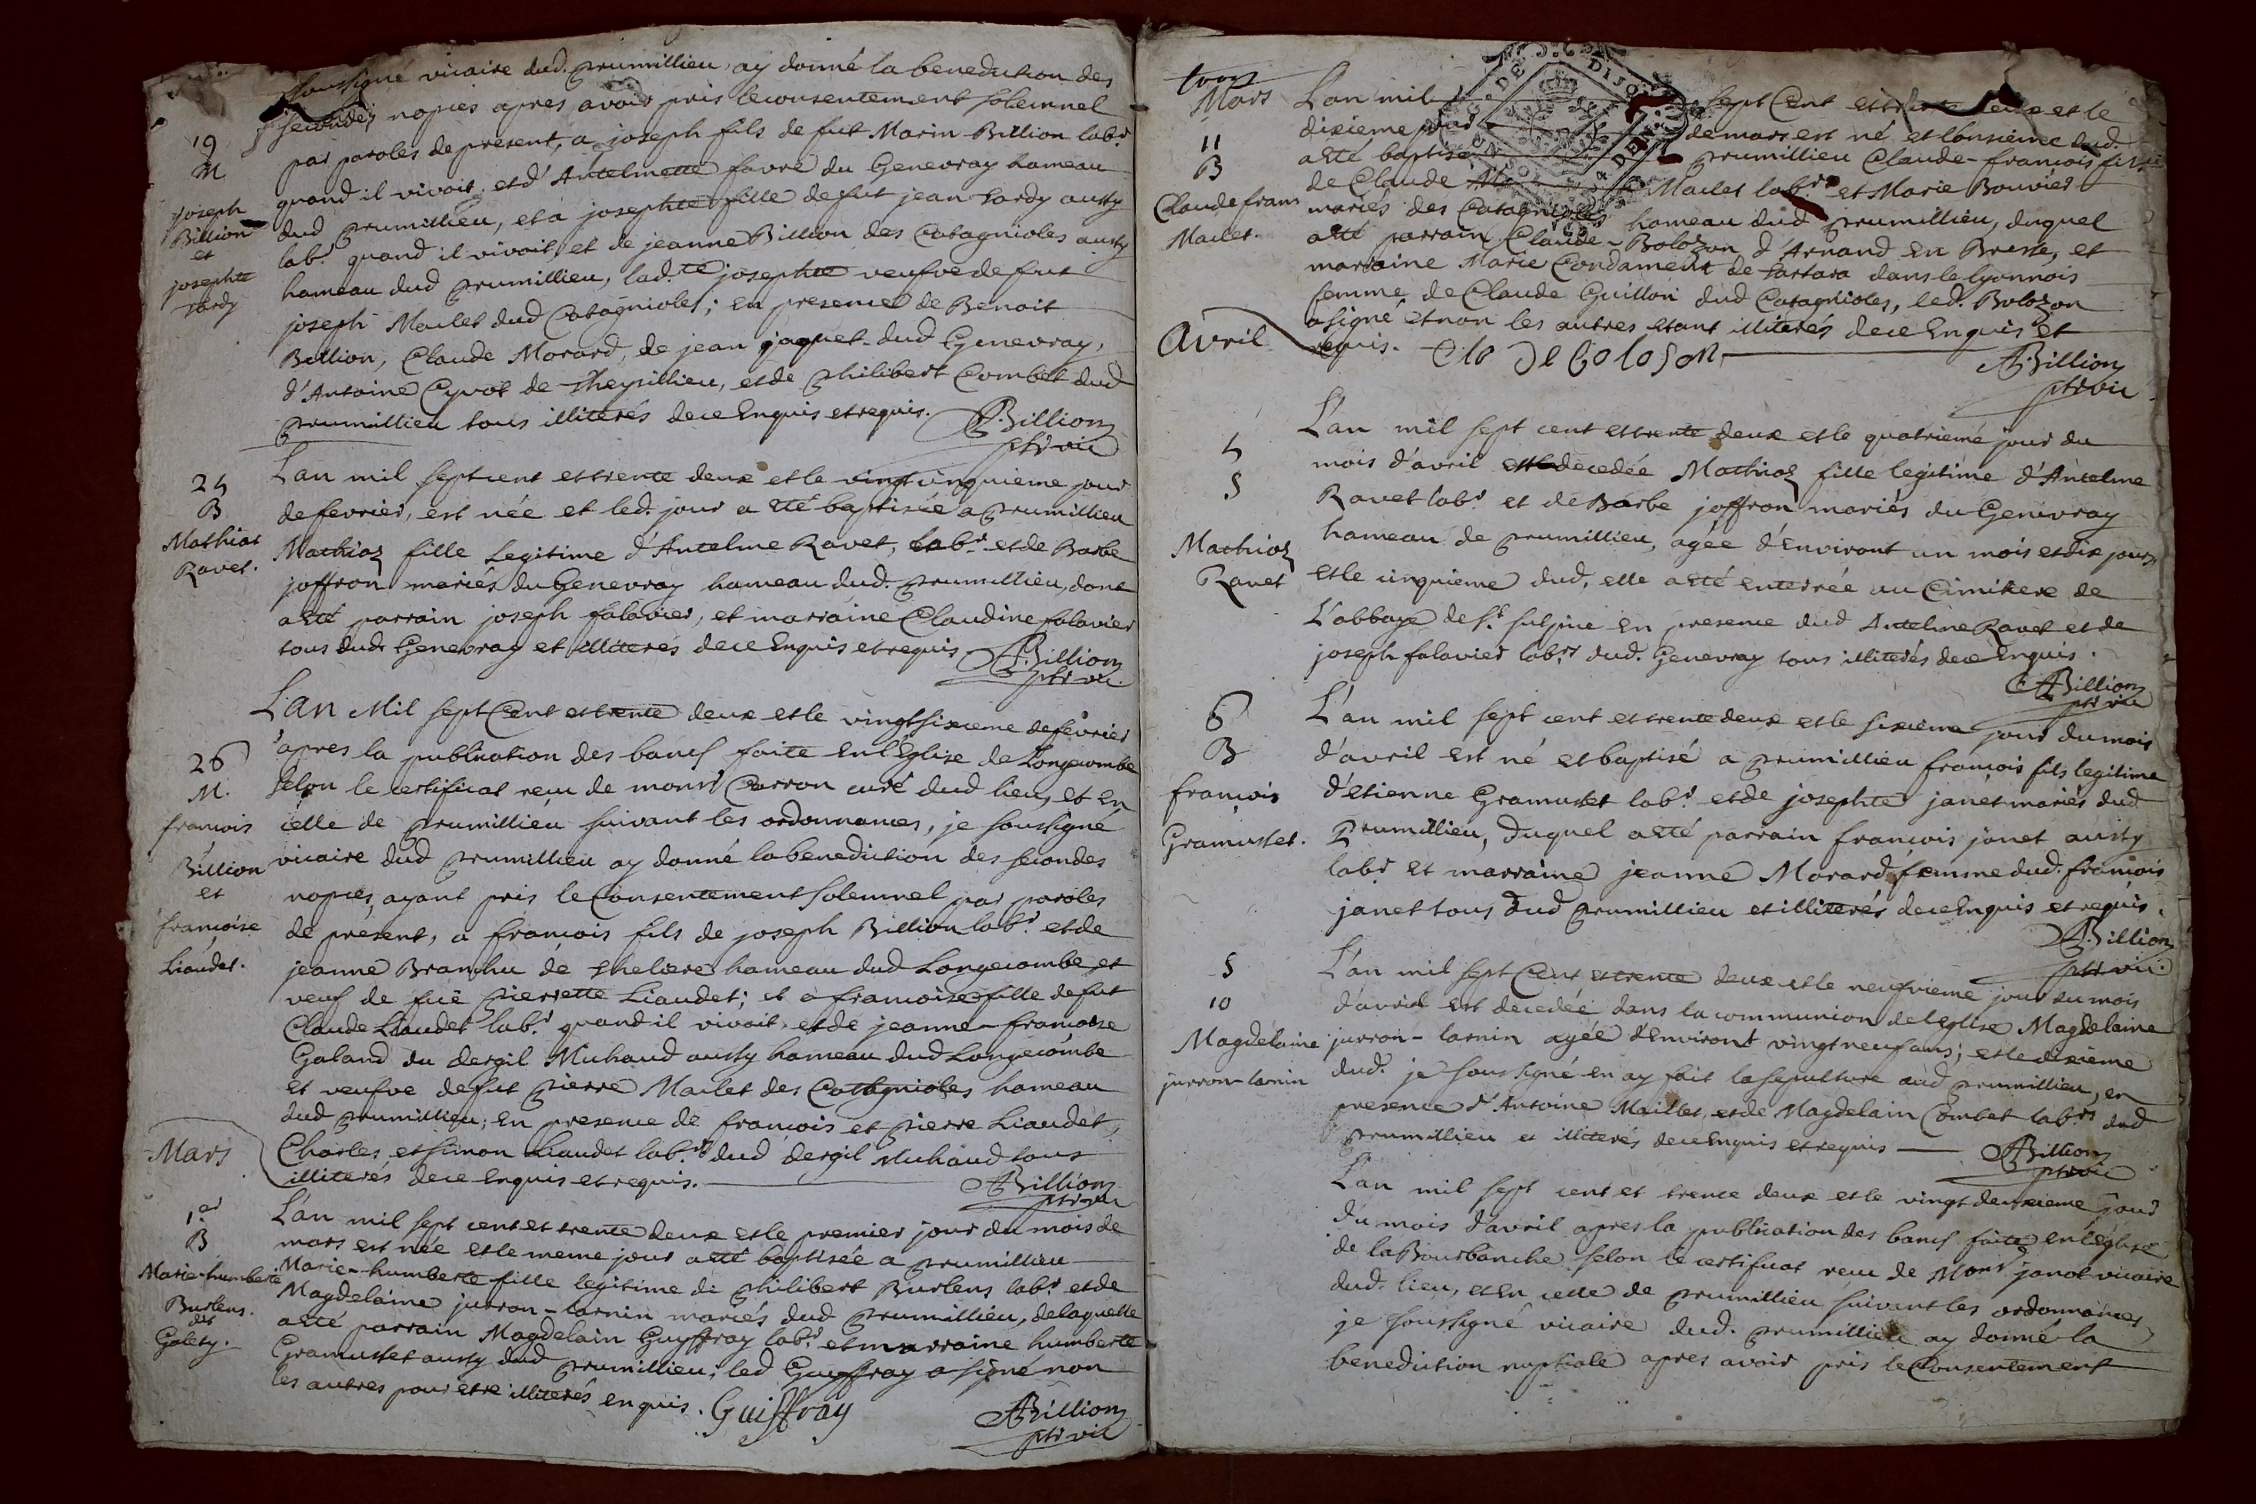 soussigné vicaire dud. prumillieu, ay donné la benediction des
secondes nopces apres avoir pris le consentement solemnel
19
M
Joseph
Billion
et
josephte
tardy
par paroles de present, a joseph fils de fut Marin Billion labr.
quand il vivoit, et d'Antelmette favre du Genevray hameau
dud prumillieu, et a josephte fille de fut jean tardy aussy
labr. quand il vivoit, et de jeanne Billion des Catagnioles aussy
hameau dud prumillieu, lad.te josephte veufve de fut
joseph Maclet dud Catagnioles; en presence de Benoit
Billion, Claude Morard, de jean jaquet dud Genevray,
d'Antoine Cyvot de theysillieu, et de philibert Combet dud
prumillieu tous illiterés de ce Enquis et requis. ABillion
ptre vic
25
B
Mathiaz
Ravet.
L'an mil sept cent et trente deux et le vingt cinquieme jour
de fevrier, est née et led. jour a été baptisée a prumillieu
Mathiaz fille Legitime d'Antelme Ravet, labr. et de Barbe
joffron mariés du Genevray hameau dud. prumillieu, dont
a été parrain joseph falavier, et marraine Claudine falavier
tous dud. Genevray et illiterés de ce Enquis et requis ABillion
ptre vic.
26
M.
francois
Billion
et
francoise
Liaudet.
L'an Mil sept Cent et trente deux et le vingt sixieme de fevrier
apres la publication des bancs faite en l'Eglise de Longecombe
selon le certificat reçu de monsr Carron curé dud lieu, et en
icelle de prumillieu suivant les ordonnances, je soussigné
vicaire dud prumillieu ay donné la benediction des secondes
nopces, ayant pris le Consentement solemnel par paroles
de present, a francois fils de joseph Billion labr. et de
jeanne Branchu de theliere hameau dud Longecombe, et
veuf de fuë pierrette Liaudet; et a francoise fille de fut
Claude Liaudet labr. quand il vivoit, et de jeanne-francoise
Galand du dergil Michaud aussy hameau dud Longecombe
et veufve de fut pierre Maclet des Catagnioles hameau
dud prumillieu; En presence de francois et pierre Liaudet,
Charles, et simon Liaudet labrs. dud dergil Michaud tous
illiterés de ce Enquis et requis. ABillion
ptre vic
Mars
1er
B
Marie-humberte
Burlens.
dit
Golety.
L'an mil sept cent et trente deux et le premier jour du mois de
mars est née et le meme jour a été baptisée a prumillieu
Marie-humberte fille legitime de philibert Burlens labr. et de
Magdelaine jurron-tarnin mariés dud prumillieu, de laquelle
a été parrain Magdelain Guyffray labr. et marraine humberte
Gramusset aussy dud prumillieu; led Guyffray a signé non
les autres pour etre illiterés enquis. Guiffray ABillion
ptre vic
Mars
11
B
Claude franc
Maclet.
L'an mil sept Cent et trente deux et le
dixieme jour de mars est né et l'onsieme dud.
a été baptisé a prumillieu Claude-francois fils
de Claude Maclet labr. et Marie Bouvier
mariés des Catagnioles hameau dud prumillieu, duquel
a été parrain Claude-Bolozon d'Arnand En Bresse, et
marraine Marie Condament de tartara dans le lyonnois
femme de Claude Guillon dud Catagnioles, led. Bolozon
a signé et non les autres etant illiterés de ce Enquis et
requis. Clo De Boloson ABillion
ptre vic
DE DIJON
Avril
4
5
Mathiaz
Ravet
L'an mil sept cent et trente deux et le quatrieme jour du
mois d'avril est decedée Mathiaz fille legitime d'Antelme
Ravet labr. et de Barbe joffron mariés du Genevray
hameau de prumillieu, agée d'Environt un mois et dix jours,
et le cinquieme dud. elle a été enterrée au Cimitiere de
L'abbaye de St. sulpice en presence dud Antelme Ravet et de
joseph falavier labrs. dud. Genevray tous illiterés de ce Enquis.
ABillion
ptre vic
6
B
francois
Gramusset.
L'an mil sept cent et trente deux et le sixieme jour du mois
d'avril est né et baptisé a prumillieu francois fils legitime
d'etienne Gramusset labr. et de josephte janet mariés dud
Prumillieu, duquel a été parrain francois janet aussy
labr. et marraine jeanne Morard femme dud. francois
janet tous dud prumillieu et illiterés de ce Enquis et requis.
ABillion
ptre vic.
S
10
Magdelaine
jurron-tarnin
L'an mil sept Cent et trente deux et le neufvieme jour du mois
d'avril est decedée dans la communion de l'eglise Magdelaine
jurron-tarnin agée d'Environt vingt neuf ans; et le dixieme
dud. je soussigné en ay fait la sepulture aud prumillieu, en
presence d'Antoine Maillet, et de Magdelain Combet labrs. dud
prumillieu et illiterés de ce Enquis et requis ABillion
ptre vic
L'an mil sept cent et trente deux et le vingt deuxieme jour
du mois d'avril apres la publication des bancs faite en l'eglise
de la Boursbanche selon le certificat recu de Monsr janot vicaire
dud. lieu, et En celle de prumillieu suivant les ordonnances,
je soussigné vicaire dud. prumillieu ay donné la
benediction nuptiale apres avoir pris le Consentement